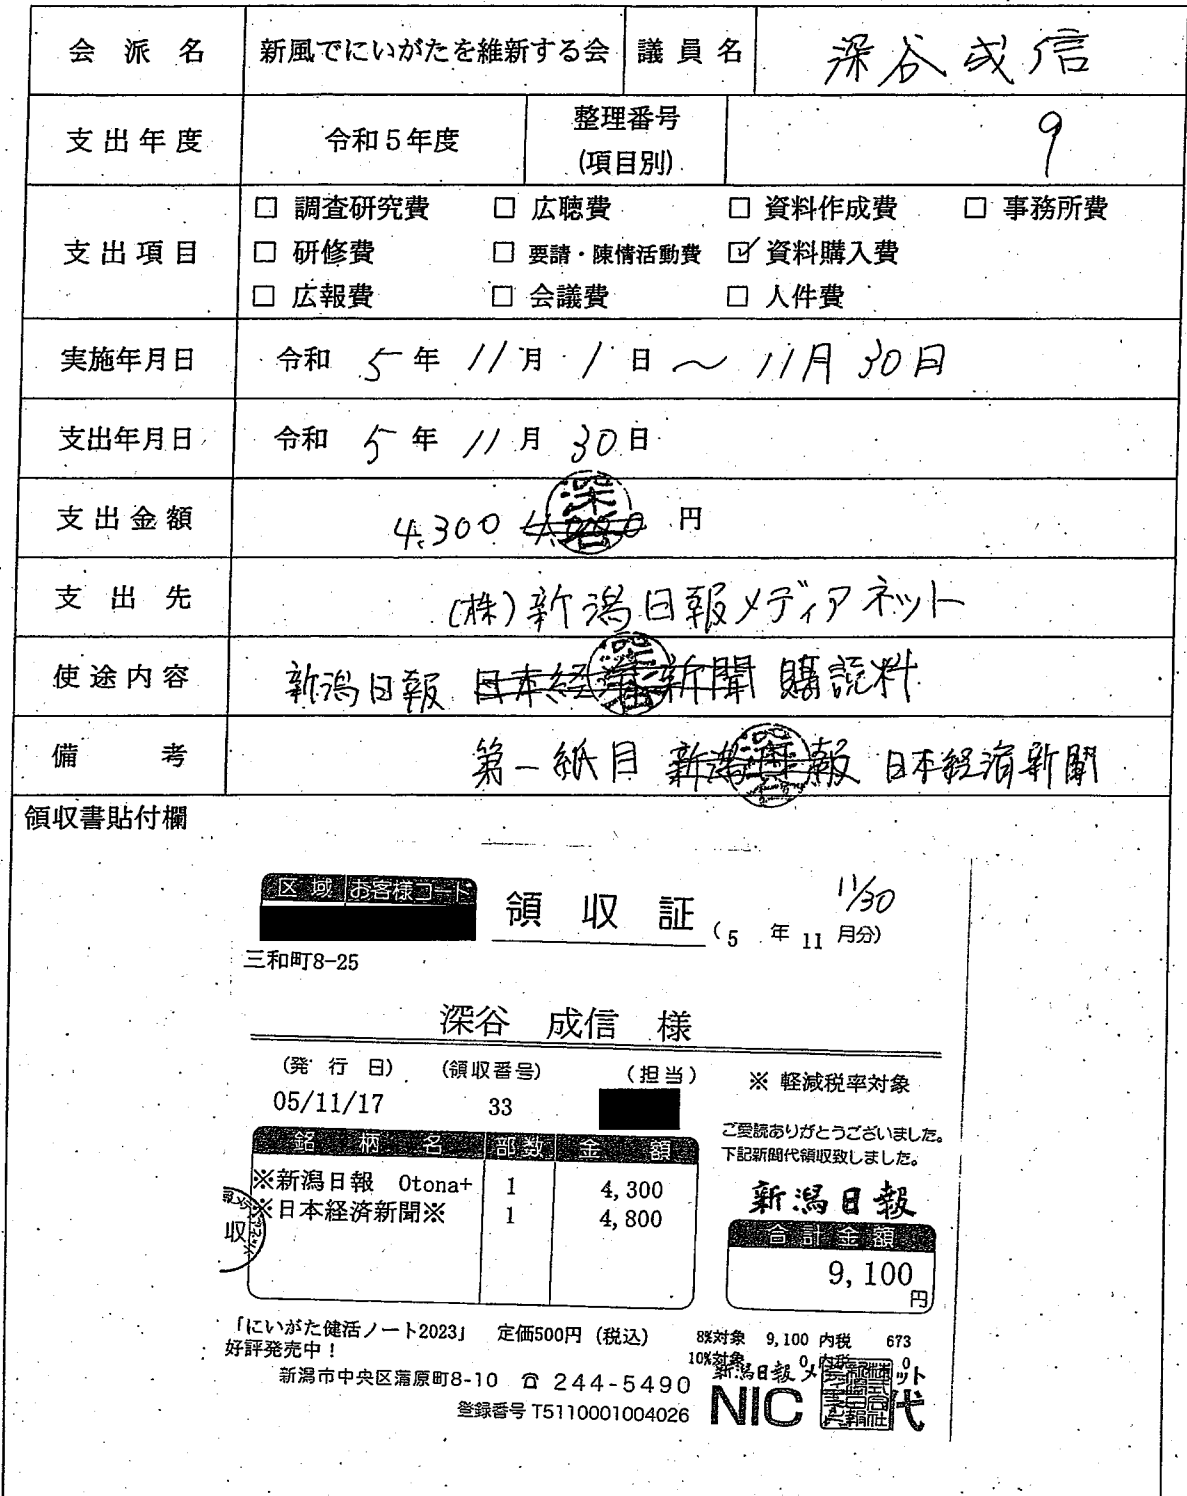 会派名 新風でにいがたを維新する会 議員名 深谷成信
支出年度 令和5年度 整理番号(項目別) 9
支出項目
□ 調査研究費 □ 広聴費 □ 資料作成費 □ 事務所費
□ 研修費 □ 要請・陳情活動費 ☑ 資料購入費
□ 広報費 □ 会議費 □ 人件費
実施年月日 令和 5年 11月 1日 ~ 11月30日
支出年月日 令和 5年 11月 30日
支出金額 4,300 円
支出先 (株)新潟日報メディアネット
使途内容 新潟日報 日本経済新聞 購読料
備考 第一紙目 新潟日報 日本経済新聞
領収書貼付欄
区域 お客様コード
領収証 (5年11月分) 11/30
三和町8-25
深谷 成信 様
(発行日) (領収番号) (担当) ※ 軽減税率対象
05/11/17 33
ご愛読ありがとうございました。
下記新聞代領収致しました。
銘柄名 部数 金額
※新潟日報 Otona+ 1 4,300
※日本経済新聞※ 1 4,800
新潟日報
合計金額
9,100円
「にいがた健活ノート2023」 定価500円(税込)
好評発売中!
8%対象 9,100 内税 673
10%対象 0 内税 0
新潟市中央区蒲原町8-10 ☎ 244-5490
登録番号 T5110001004026
NIC